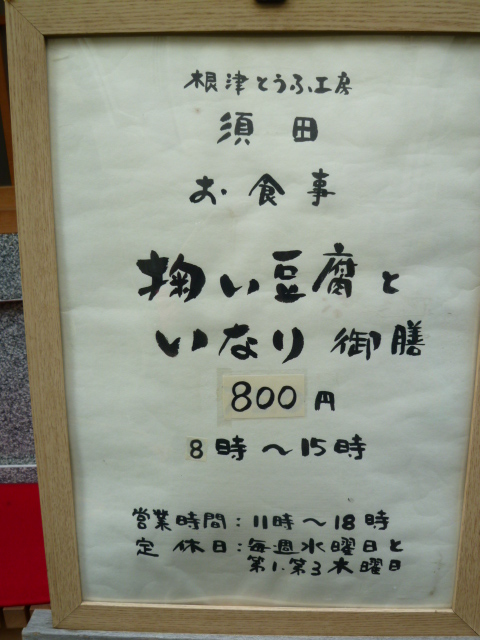 根津とうふ工房
須田
お食事
掬い豆腐と
いなり御膳
800円
8時～15時
営業時間：11時～18時
定休日：毎週水曜日と
第1.第3木曜日